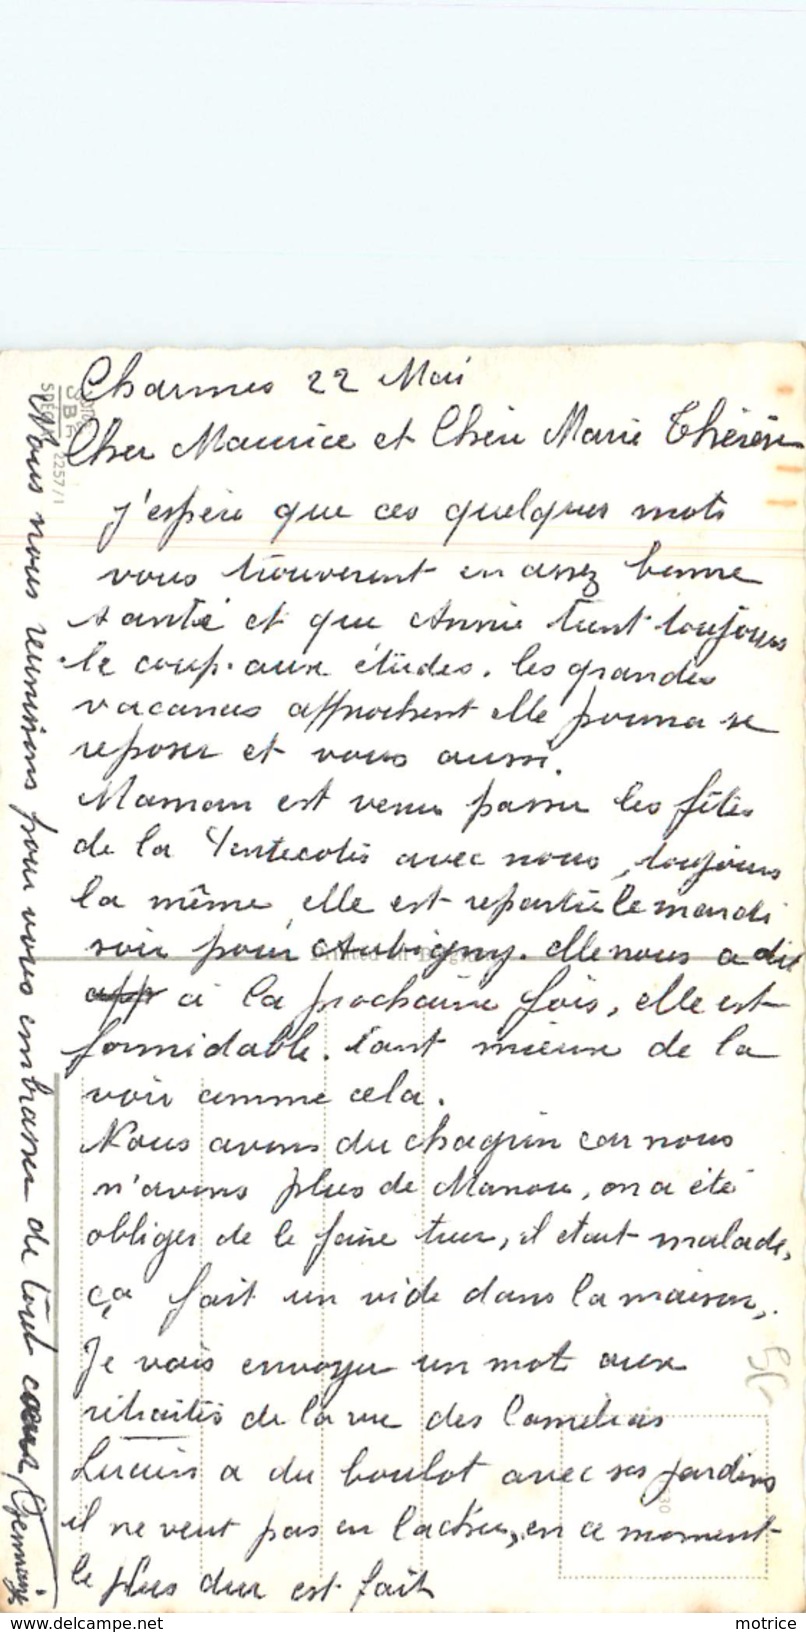 Charmes 22 Mai
Cher Maurice et Chère Marie Thérèse
j'espère que ces quelques mots
vous trouveront en assez bonne
santé et que Annie tient toujours
le coup. aux études. les grandes
vacances approchent elle pourra se
reposer et vous aussi.
Maman est venu passer les fêtes
de la Pentecotes avec nous, toujours
la même, elle est repartie le mardi
soir pour Aubigny. elle nous a dit
app à la prochaine fois, elle est
formidable. tant mieux de la
voir comme cela.
Nous avons du chagrin car nous
n'avons plus de Manou, on a été
obliger de le faire tuer, il était malade,
ça fait un vide dans la maison,.
Je vais envoyer un mot aux
retraités de la rue des Camélias
Lucien a du boulot avec ses jardins
il ne veut pas en lacher, en ce moment
le plus dur est fait
Nous nous reunissons pour vous embrasser de tout coeur, Germaine
2257/1
Printed in Belgium
30
motrice